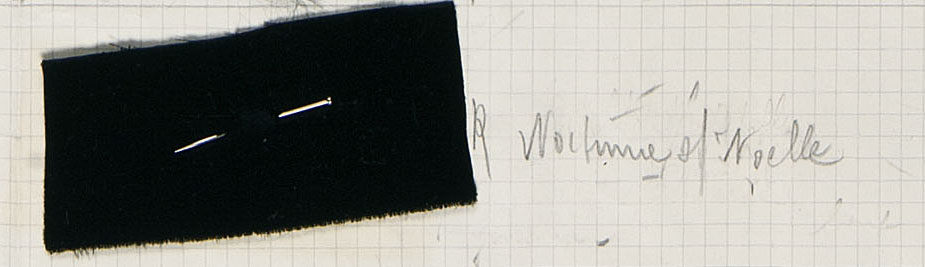 R Nocturne s/ Noelle